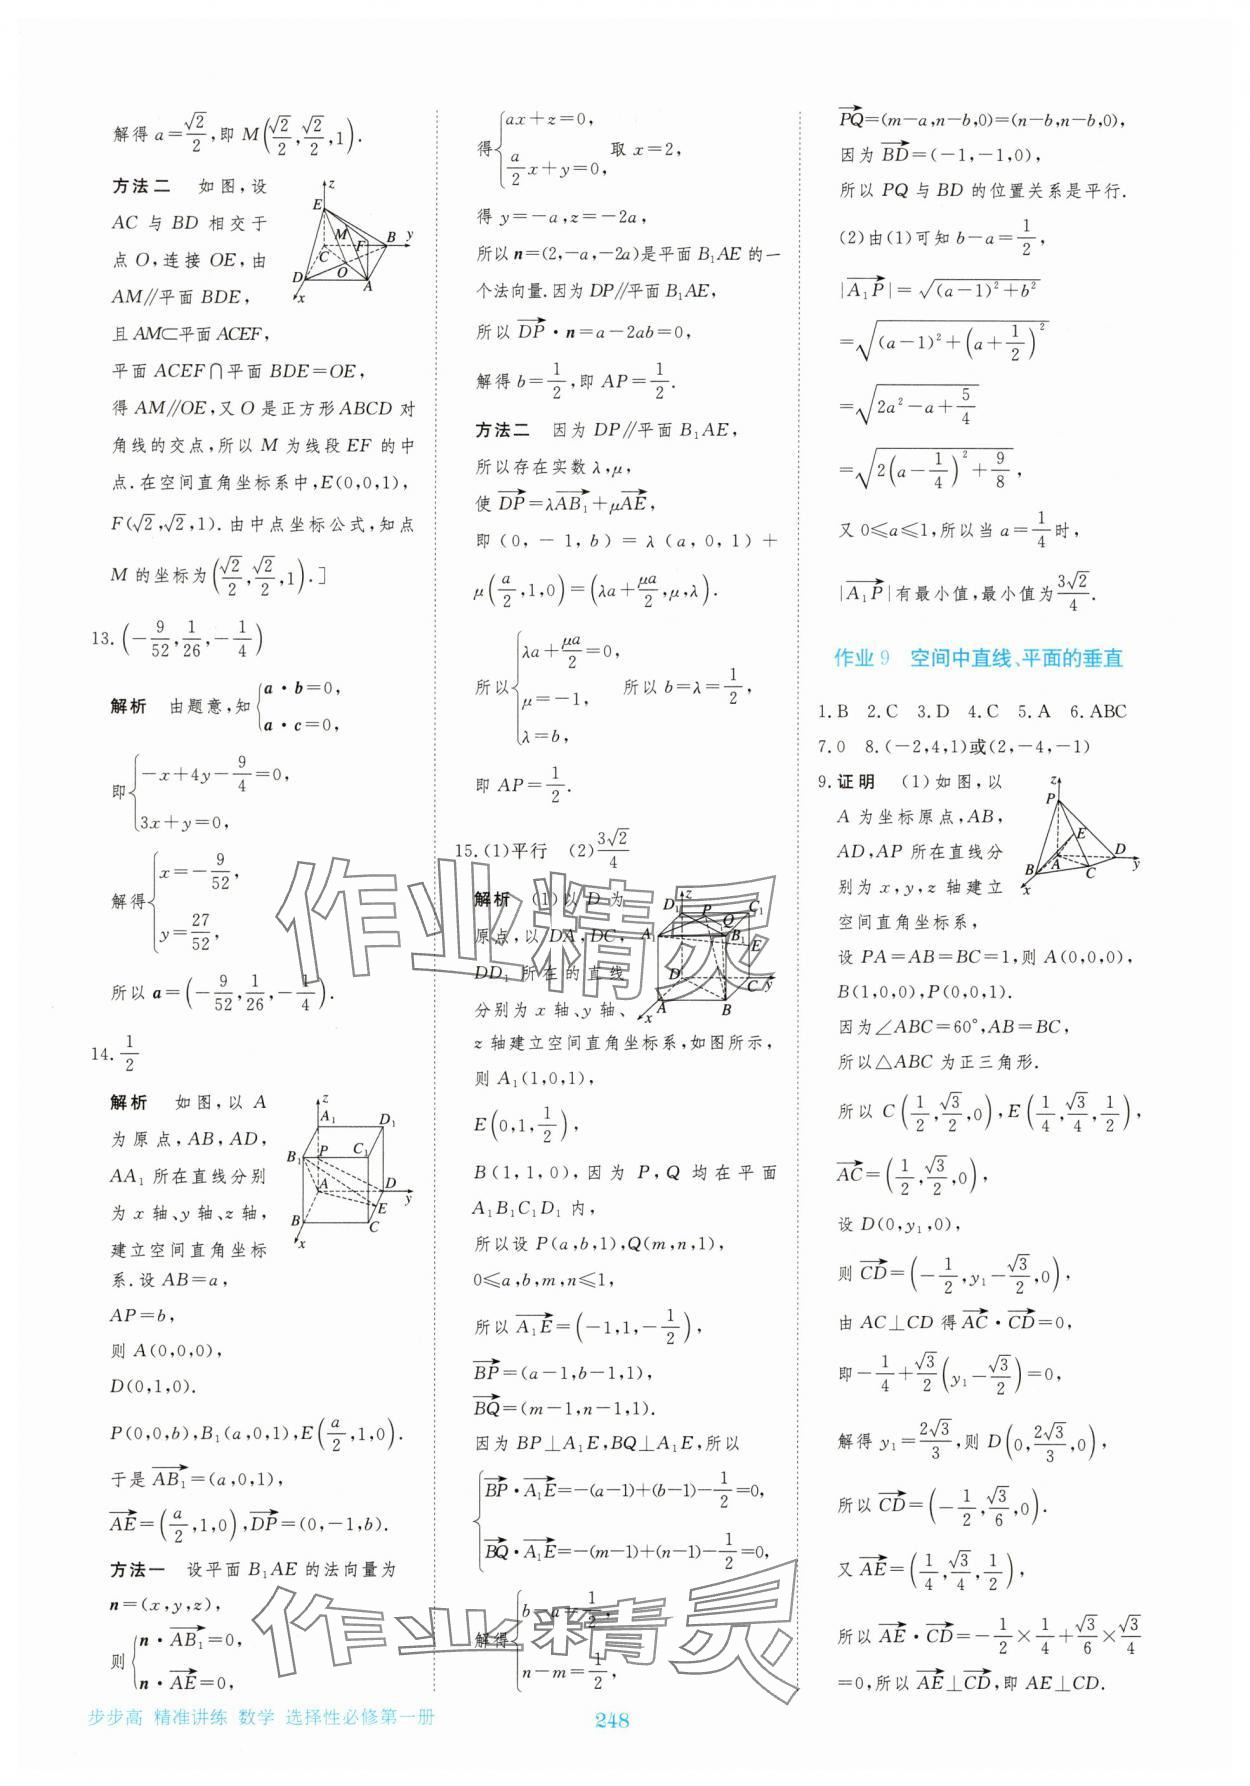 解得 a=√2/2,即 M(√2/2,√2/2,1).
方法二 如图,设
AC 与 BD 相交于
点 O,连接 OE,由
AM∥平面 BDE,
且 AM⊂平面 ACEF,
平面 ACEF∩平面 BDE=OE,
得 AM∥OE,又 O 是正方形 ABCD 对
角线的交点,所以 M 为线段 EF 的中
点.在空间直角坐标系中,E(0,0,1),
F(√2,√2,1).由中点坐标公式,知点
M 的坐标为(√2/2,√2/2,1).]
z
E
M
B
y
C
F
D
O
A
x
13.(-9/52,1/26,-1/4)
解析 由题意,知{a·b=0,
a·c=0,
即{-x+4y-9/4=0,
3x+y=0,
解得{x=-9/52,
y=27/52,
所以 a=(-9/52,1/26,-1/4).
14.1/2
解析 如图,以 A
为原点,AB,AD,
AA₁ 所在直线分别
为 x 轴、y 轴、z 轴,
建立空间直角坐标
系.设 AB=a,
AP=b,
则 A(0,0,0),
D(0,1,0).
z
A₁
D₁
B₁
P
C₁
A
D
y
E
B
C
x
P(0,0,b),B₁(a,0,1),E(a/2,1,0).
于是 AB₁→=(a,0,1),
AE→=(a/2,1,0),DP→=(0,-1,b).
方法一 设平面 B₁AE 的法向量为
n=(x,y,z),
则{n·AB₁→=0,
n·AE→=0,
得{ax+z=0,
a/2x+y=0,
取 x=2,
得 y=-a,z=-2a,
所以 n=(2,-a,-2a)是平面 B₁AE 的一
个法向量.因为 DP∥平面 B₁AE,
所以 DP→·n=a-2ab=0,
解得 b=1/2,即 AP=1/2.
方法二 因为 DP∥平面 B₁AE,
所以存在实数 λ,μ,
使 DP→=λAB₁→+μAE→,
即(0,-1,b)=λ(a,0,1)+
μ(a/2,1,0)=(λa+μa/2,μ,λ).
所以{λa+μa/2=0,
μ=-1,
λ=b,
所以 b=λ=1/2,
即 AP=1/2.
15.(1)平行 (2)3√2/4
解析 (1)以 D 为
原点,以 DA,DC,
DD₁ 所在的直线
分别为 x 轴、y 轴、
z 轴建立空间直角坐标系,如图所示,
z
D₁
P
C₁
Q
A₁
B₁
E
D
C
y
A
B
x
则 A₁(1,0,1),
E(0,1,1/2),
B(1,1,0),因为 P,Q 均在平面
A₁B₁C₁D₁ 内,
所以设 P(a,b,1),Q(m,n,1),
0≤a,b,m,n≤1,
所以 A₁E→=(-1,1,-1/2),
BP→=(a-1,b-1,1),
BQ→=(m-1,n-1,1).
因为 BP⊥A₁E,BQ⊥A₁E,所以
{BP→·A₁E→=-(a-1)+(b-1)-1/2=0,
BQ→·A₁E→=-(m-1)+(n-1)-1/2=0,
解得{b-a=1/2,
n-m=1/2,
PQ→=(m-a,n-b,0)=(n-b,n-b,0),
因为 BD→=(-1,-1,0),
所以 PQ 与 BD 的位置关系是平行.
(2)由(1)可知 b-a=1/2,
|A₁P→|=√((a-1)²+b²)
=√((a-1)²+(a+1/2)²)
=√(2a²-a+5/4)
=√(2(a-1/4)²+9/8),
又 0≤a≤1,所以当 a=1/4时,
|A₁P→|有最小值,最小值为3√2/4.
作业 9 空间中直线、平面的垂直
1.B 2.C 3.D 4.C 5.A 6.ABC
7.0 8.(-2,4,1)或(2,-4,-1)
9.证明 (1)如图,以
A 为坐标原点,AB,
AD,AP 所在直线分
别为 x,y,z 轴建立
空间直角坐标系,
z
P
E
D
A
y
B
C
x
设 PA=AB=BC=1,则 A(0,0,0),
B(1,0,0),P(0,0,1).
因为∠ABC=60°,AB=BC,
所以△ABC 为正三角形.
所以 C(1/2,√3/2,0),E(1/4,√3/4,1/2),
AC→=(1/2,√3/2,0),
设 D(0,y₁,0),
则 CD→=(-1/2,y₁-√3/2,0),
由 AC⊥CD 得 AC→·CD→=0,
即-1/4+√3/2(y₁-√3/2)=0,
解得 y₁=2√3/3,则 D(0,2√3/3,0),
所以 CD→=(-1/2,√3/6,0).
又 AE→=(1/4,√3/4,1/2),
所以 AE→·CD→=-1/2×1/4+√3/6×√3/4
=0,所以 AE→⊥CD→,即 AE⊥CD.
作业精灵
作业精灵
步步高 精准讲练 数学 选择性必修第一册
248